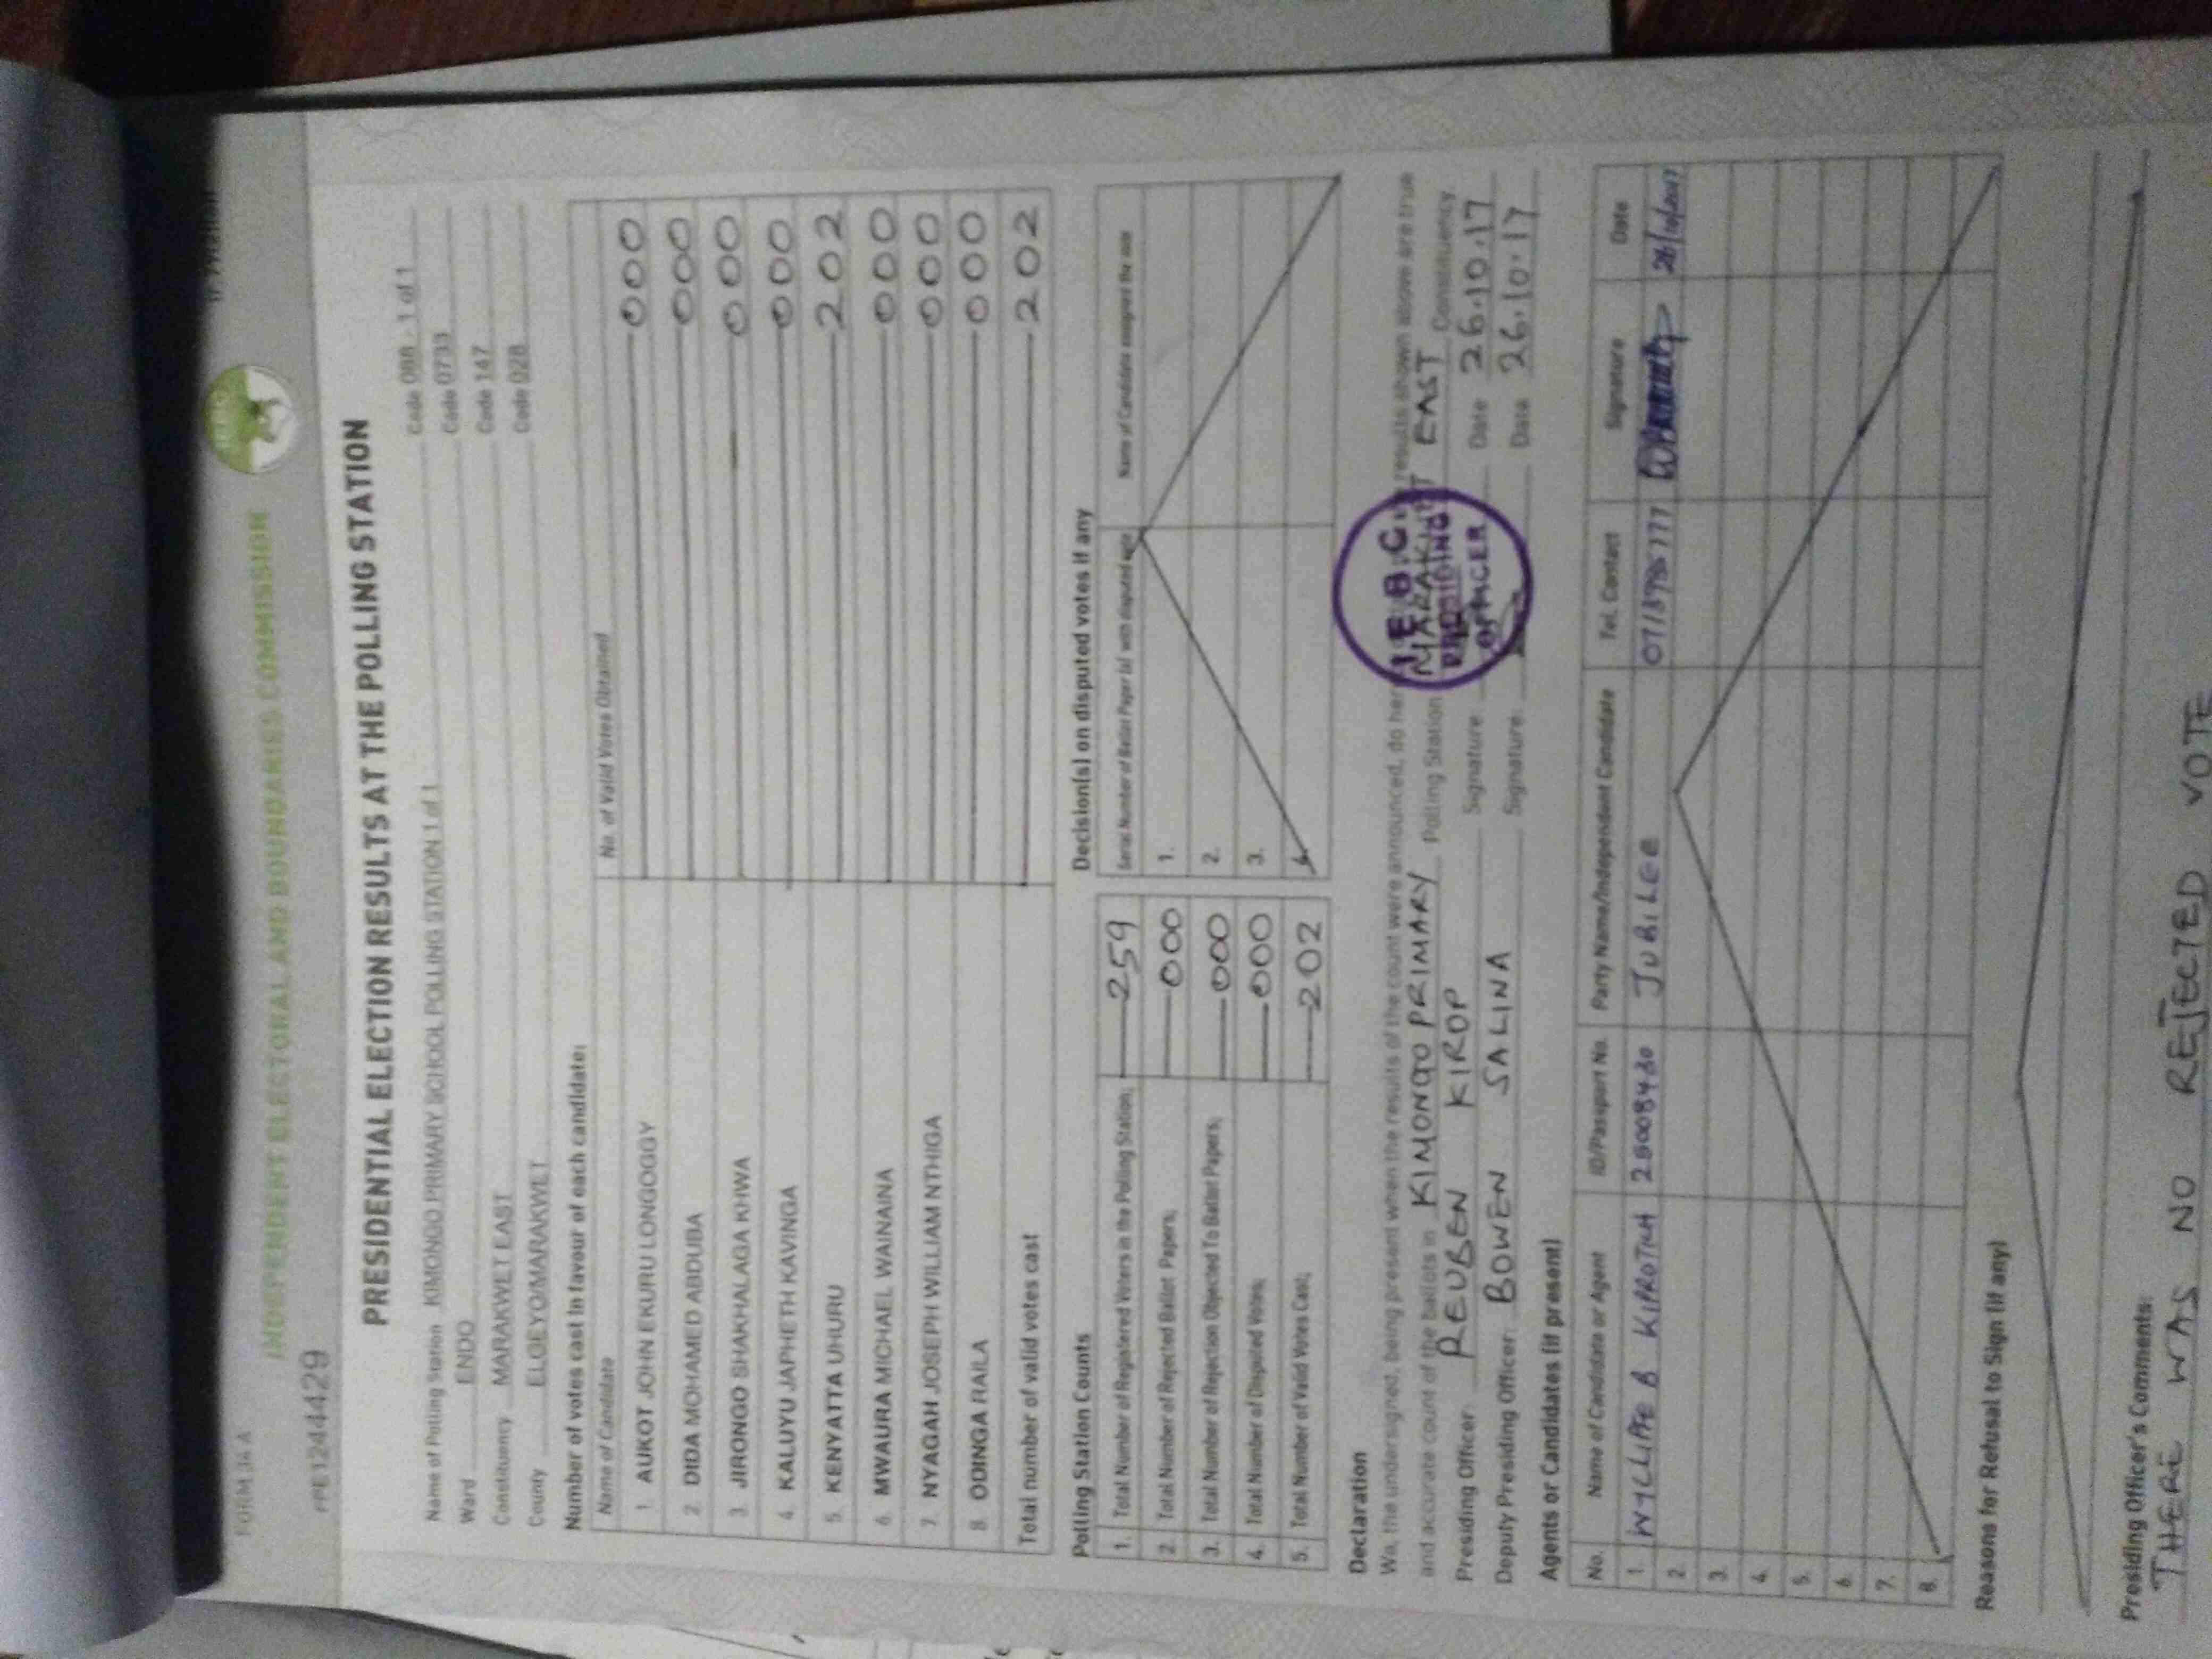 FORM 34 A
INDEPENDENT ELECTORAL AND BOUNDARIES COMMISSION
PRE1244429
PRESIDENTIAL ELECTION RESULTS AT THE POLLING STATION
Name of Polling Station KIMONGO PRIMARY SCHOOL POLLING STATION 1 of 1 Code 088 - 1 of 1
Ward ENDO Code 0733
Constituency MARAKWET EAST Code 147
County ELGEYO/MARAKWET Code 028
Number of votes cast in favour of each candidate:
Name of Candidate No. of Valid Votes Obtained
1 AUKOT JOHN EKURU LONGOGGY 000
2 DIDA MOHAMED ABDUBA 000
3 JIRONGO SHAKHALAGA KHWA 000
4 KALUYU JAPHETH KAVINGA 000
5. KENYATTA UHURU 202
6. MWAURA MICHAEL WAINAINA 000
7. NYAGAH JOSEPH WILLIAM NTHIGA 000
8. ODINGA RAILA 000
Total number of valid votes cast 202
Polling Station Counts
1. Total Number of Registered Voters in the Polling Station; 259
2. Total Number of Rejected Ballot Papers; 000
3. Total Number of Rejection Objected To Ballot Papers; 000
4. Total Number of Disputed Votes; 000
5. Total Number of Valid Votes Cast; 202
Decision(s) on disputed votes if any
Serial Number of Ballot Paper (s) with disputed vote Name of Candidate assigned the vote
1.
2.
3.
Declaration
We, the undersigned, being present when the results of the count were announced, do results shown above are true
and accurate count of the ballots in KIMONGO PRIMARY Polling Station MARAKWET EAST Constituency
Presiding Officer: REUBEN KIROP Signature: Date 26.10.17
Deputy Presiding Officer: BOWEN SALINA Signature: Date 26.10.17
I.E.B.C.
PRESIDING
OFFICER
Agents or Candidates (if present)
No. Name of Candidate or Agent ID/Passport No. Party Name/Independent Candidate Tel. Contact Signature Date
1. WYCLIFFE B KIPROTICH JUBILEE 26/10/2017
2.
3.
4.
5.
6.
7.
8.
Reasons for Refusal to Sign (if any)
Presiding Officer's Comments:
THERE WAS NO REJECTED VOTE